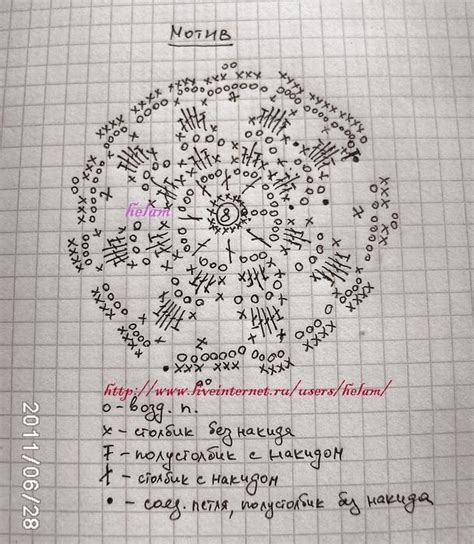 Мотив
helam
8
http://www.liveinternet.ru/users/helam/
o - возд. п.
x - столбик без накида
- полустолбик с накидом
- столбик с накидом
• - соед. петля, полустолбик без накида
2011/06/28